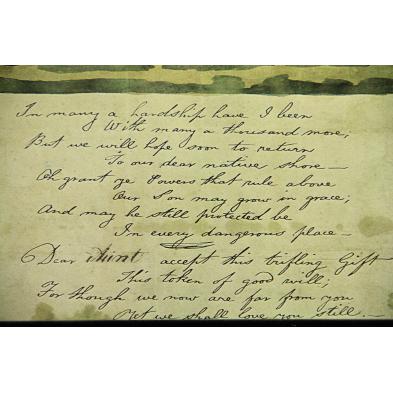 In many a hardship have I been
With many a thousand more;
But we will hope soon to return
To our dear native shore—
Oh grant ye Powers that rule above
Our Son may grow in grace;
And may he still protected be
In every dangerous place—
Dear Aunt accept this trifling Gift
This token of good will;
For though we now are far from you
Yet we shall love you still.—